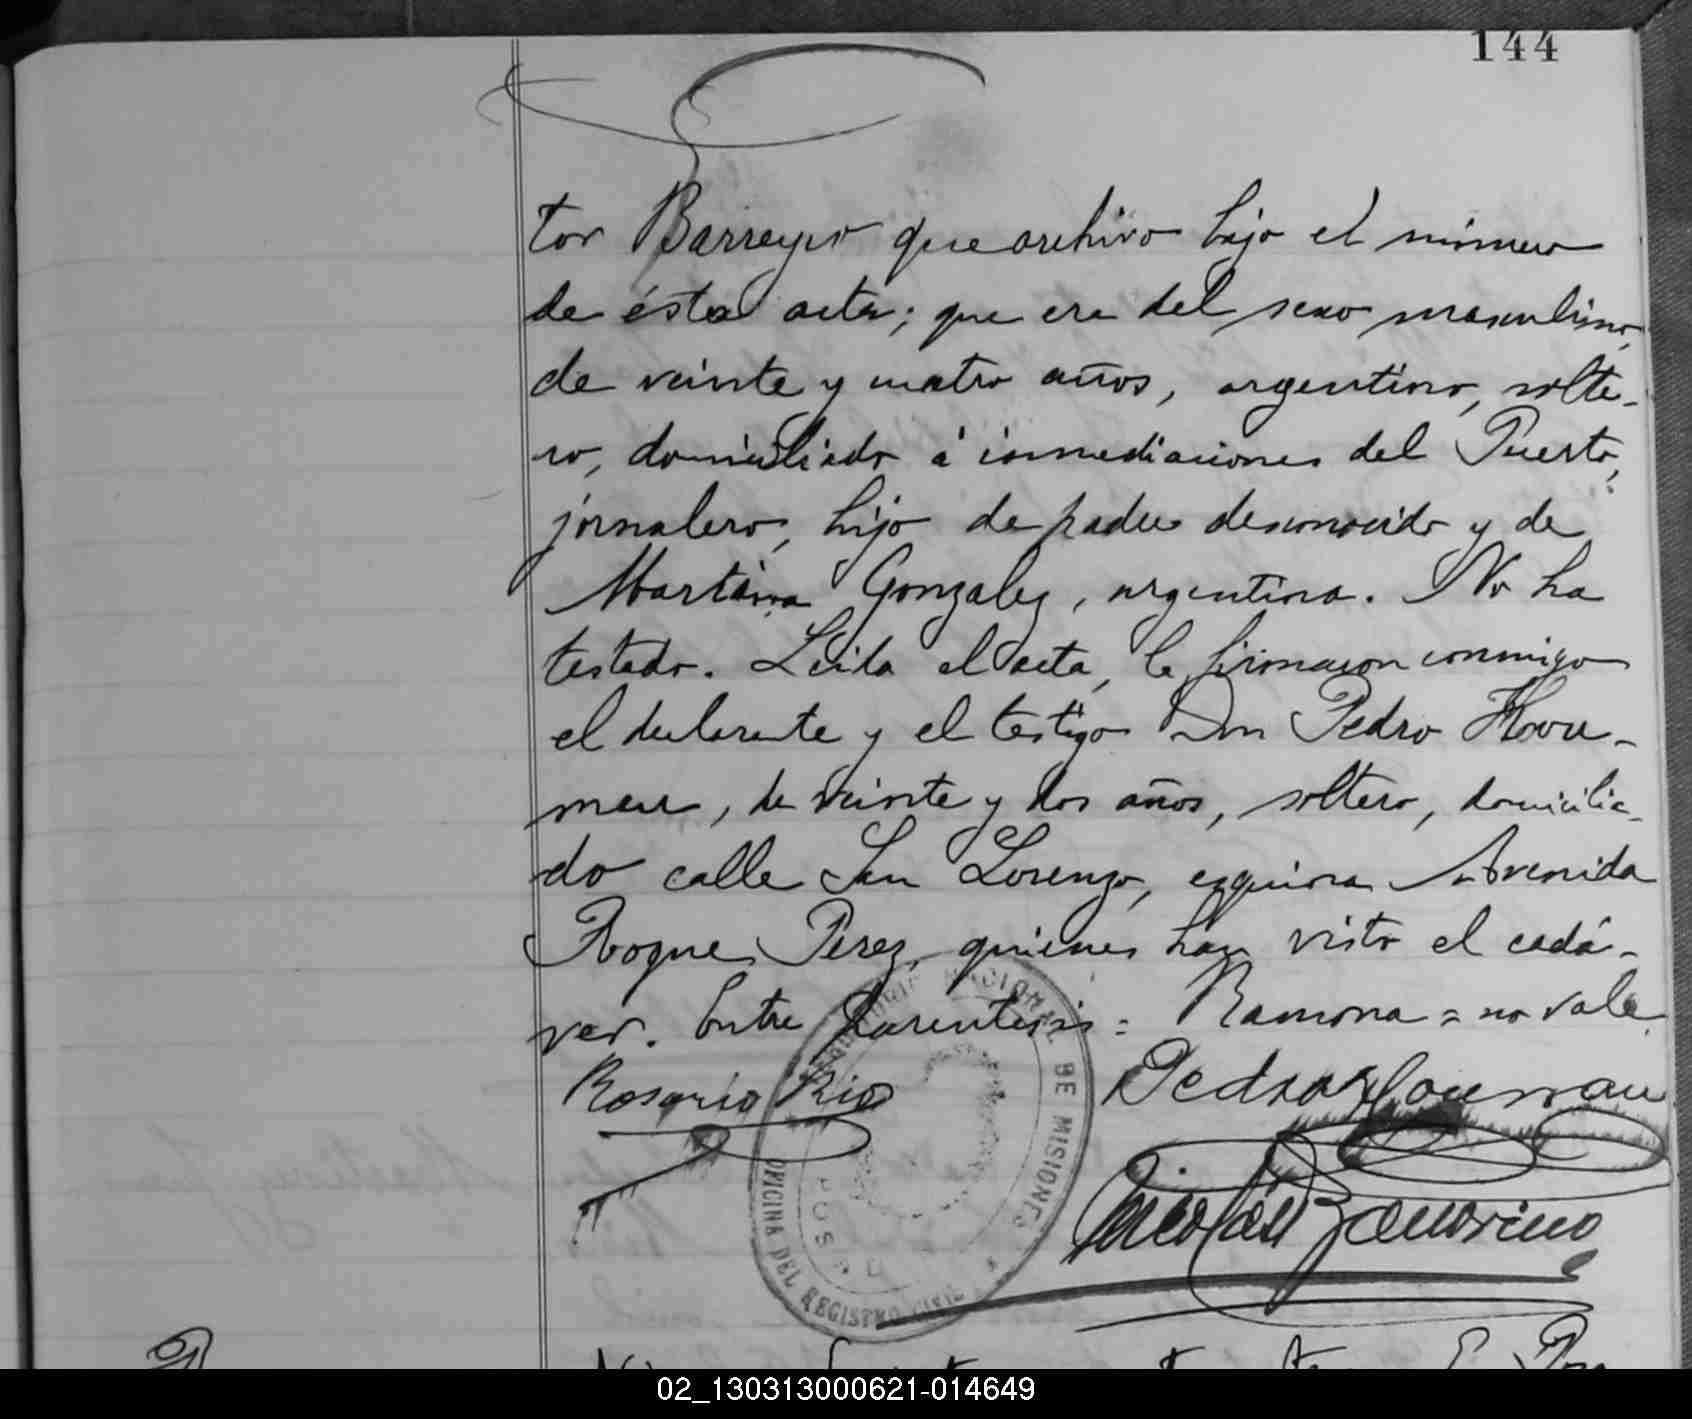 144
tor Barreyro que archivo bajo el número
de ésta acta; que era del sexo masculino,
de veinte y cuatro años, argentino, solte-
ro, domiciliado á inmediaciones del Puerto,
jornalero, hijo de padre desconocido y de
Martina Gonzalez, argentina. No ha
testado. Leida el acta, la firmaron conmigo
el declarante y el testigo Don Pedro
de veinte y dos años, soltero, domicilia-
do calle San Lorenzo, esquina Avenida
Roque Perez, quienes han visto el cadá-
ver. Entre parentesis = Ramona = no vale.
Rosario Rio
Pedro
Nicolás
NACIONAL DE MISIONES
OFICINA DEL REGISTRO CIVIL
POSADAS
02_130313000621-014649